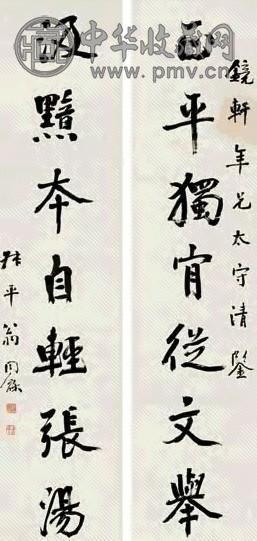 中华收藏网
www.pmv.cn
鏡軒年兄太守清鑒
正平獨肯從文舉
汲黯本自輕張湯
叔平翁同龢